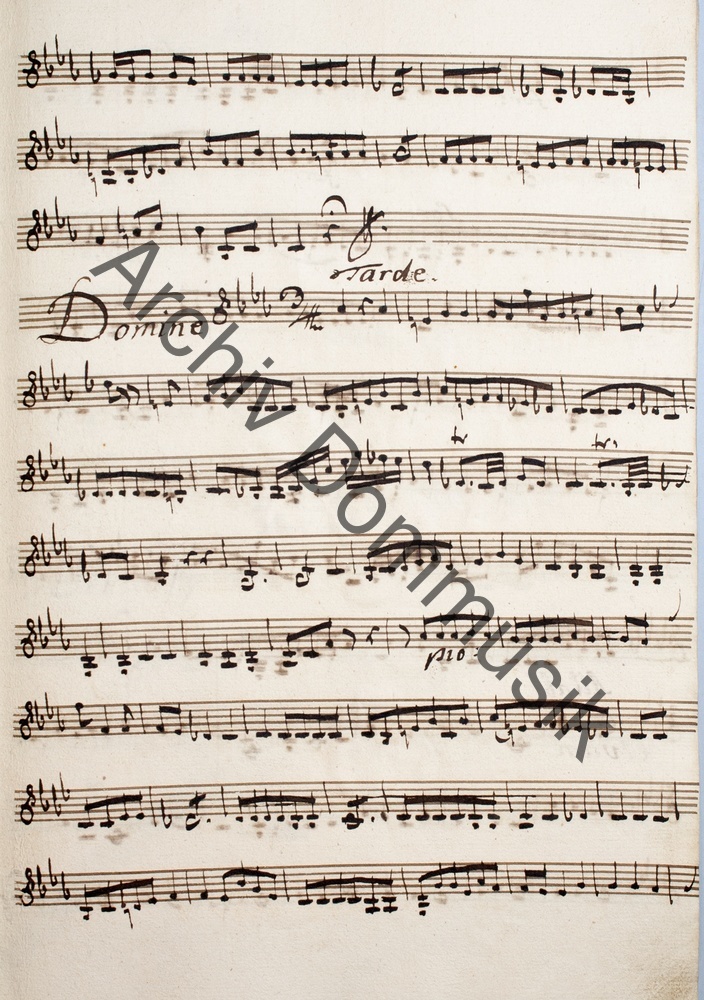 Tarde.
Domine 3/4
tr tr
pio:
Archiv Dommusik